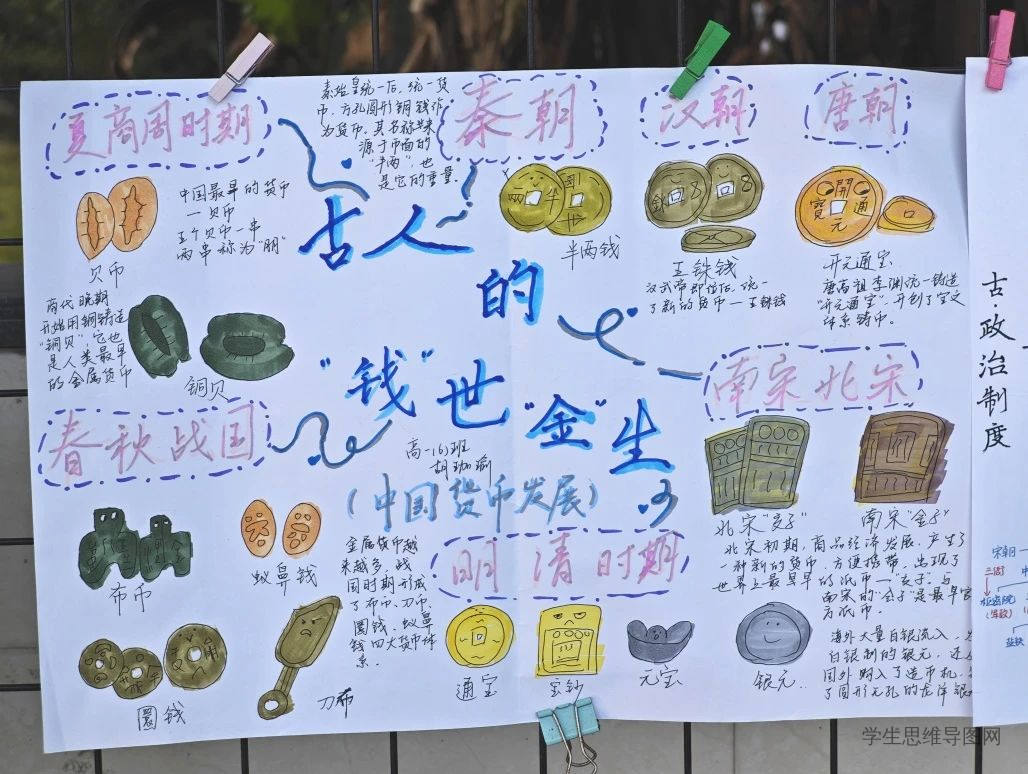 夏商周时期
中国最早的货币
一贝币
五个贝币一串
两串称为"朋"
贝币
商代晚期
开始用铜铸造
"铜贝",它也
是人类最早
的金属货币
铜贝
春秋战国
布币
蚁鼻钱
圜钱
刀币
金属货币越
来越多,战
国时期形成
了布币、刀币、
圜钱、蚁鼻
钱四大货币体
系。
秦始皇统一后,统一货
币,方孔圆形铜钱作
为货币,其名称来
源于币面的
"半两",也
是它的重量。
秦朝
半两钱
古人
的
"钱"世"金"生
高一(6)班
(中国货币发展)
汉朝
五铢钱
汉武帝即位后,统一
了新的货币一五铢钱
唐朝
開
通
元
寶
开元通宝
唐高祖李渊统一铸造
"开元通宝",开创了宝文
体系铸币。
南宋北宋
北宋"交子"
南宋"会子"
北宋初期,商品经济发展,产生了
一种新的货币,方便携带,出现了
世界上最早的纸币一"交子",与
南宋的"会子"是最早官
方纸币。
明清时期
通宝
宝钞
元宝
银元
海外大量白银流入,
白银制的银元,还
国外购入了造币机,
了圆形无孔的龙洋银
古·政治制度
宋朝
三衙
枢密院
盐铁
学生思维导图网